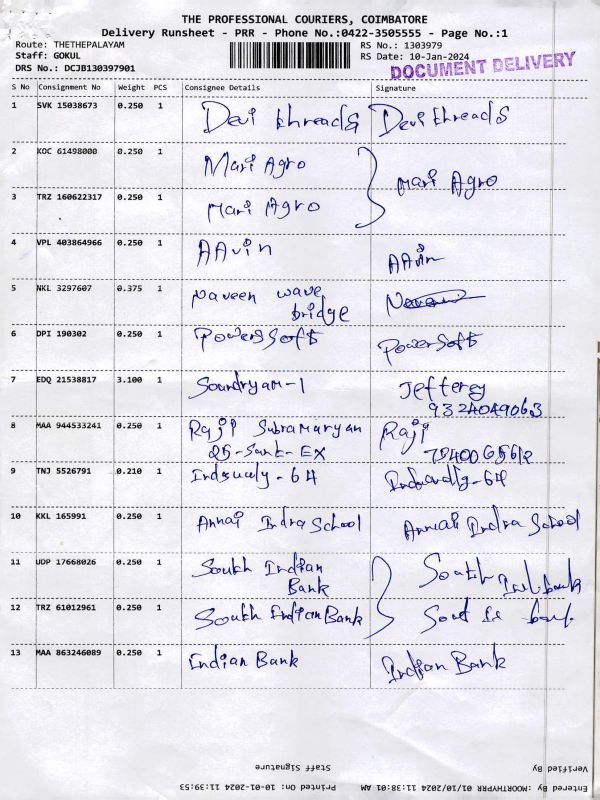 THE PROFESSIONAL COURIERS, COIMBATORE
Delivery Runsheet - PRR - Phone No.:0422-3505555 - Page No.:1
Route: THETHEPALAYAM RS No.: 1303979
Staff: GOKUL RS Date: 10-Jan-2024
DRS No.: DCJB130397901 DOCUMENT DELIVERY
S No Consignment No Weight PCS Consignee Details Signature
1 SVK 15038673 0.250 1 Devi threads Devi threads
2 KOC 61498000 0.250 1 Mari Agro Mari Agro
3 TRZ 160622317 0.250 1 Mari Agro
4 VPL 403864966 0.250 1 AAvin AAvin
5 NKL 3297607 0.375 1 Naveen wave
bridge
6 DPI 190302 0.250 1 Powersoft Powersoft
7 EDQ 21538817 3.100 1 Soundryam-1 Jefferey
9324049063
8 MAA 944533241 0.250 1 Raji Subramaryan Raji
25-Sank-EX
9 TNJ 5526791 0.210 1
10 KKL 165991 0.250 1 Annai Indra School Annai Indra School
11 UDP 17668026 0.250 1 South Indian South
Bank bank
12 TRZ 61012961 0.250 1 South Indian Bank
13 MAA 863246089 0.250 1 Indian Bank Indian Bank
Staff Signature Verified By
Printed On: 10-01-2024 11:39:53 Entered By :MOORTHYPRR 01/10/2024 11:38:01 AM